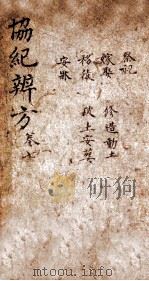 祭祀
嫁娶 修造動土
移徙 破土安葬
安牀
協紀辨方 卷七
www.toutu100.com